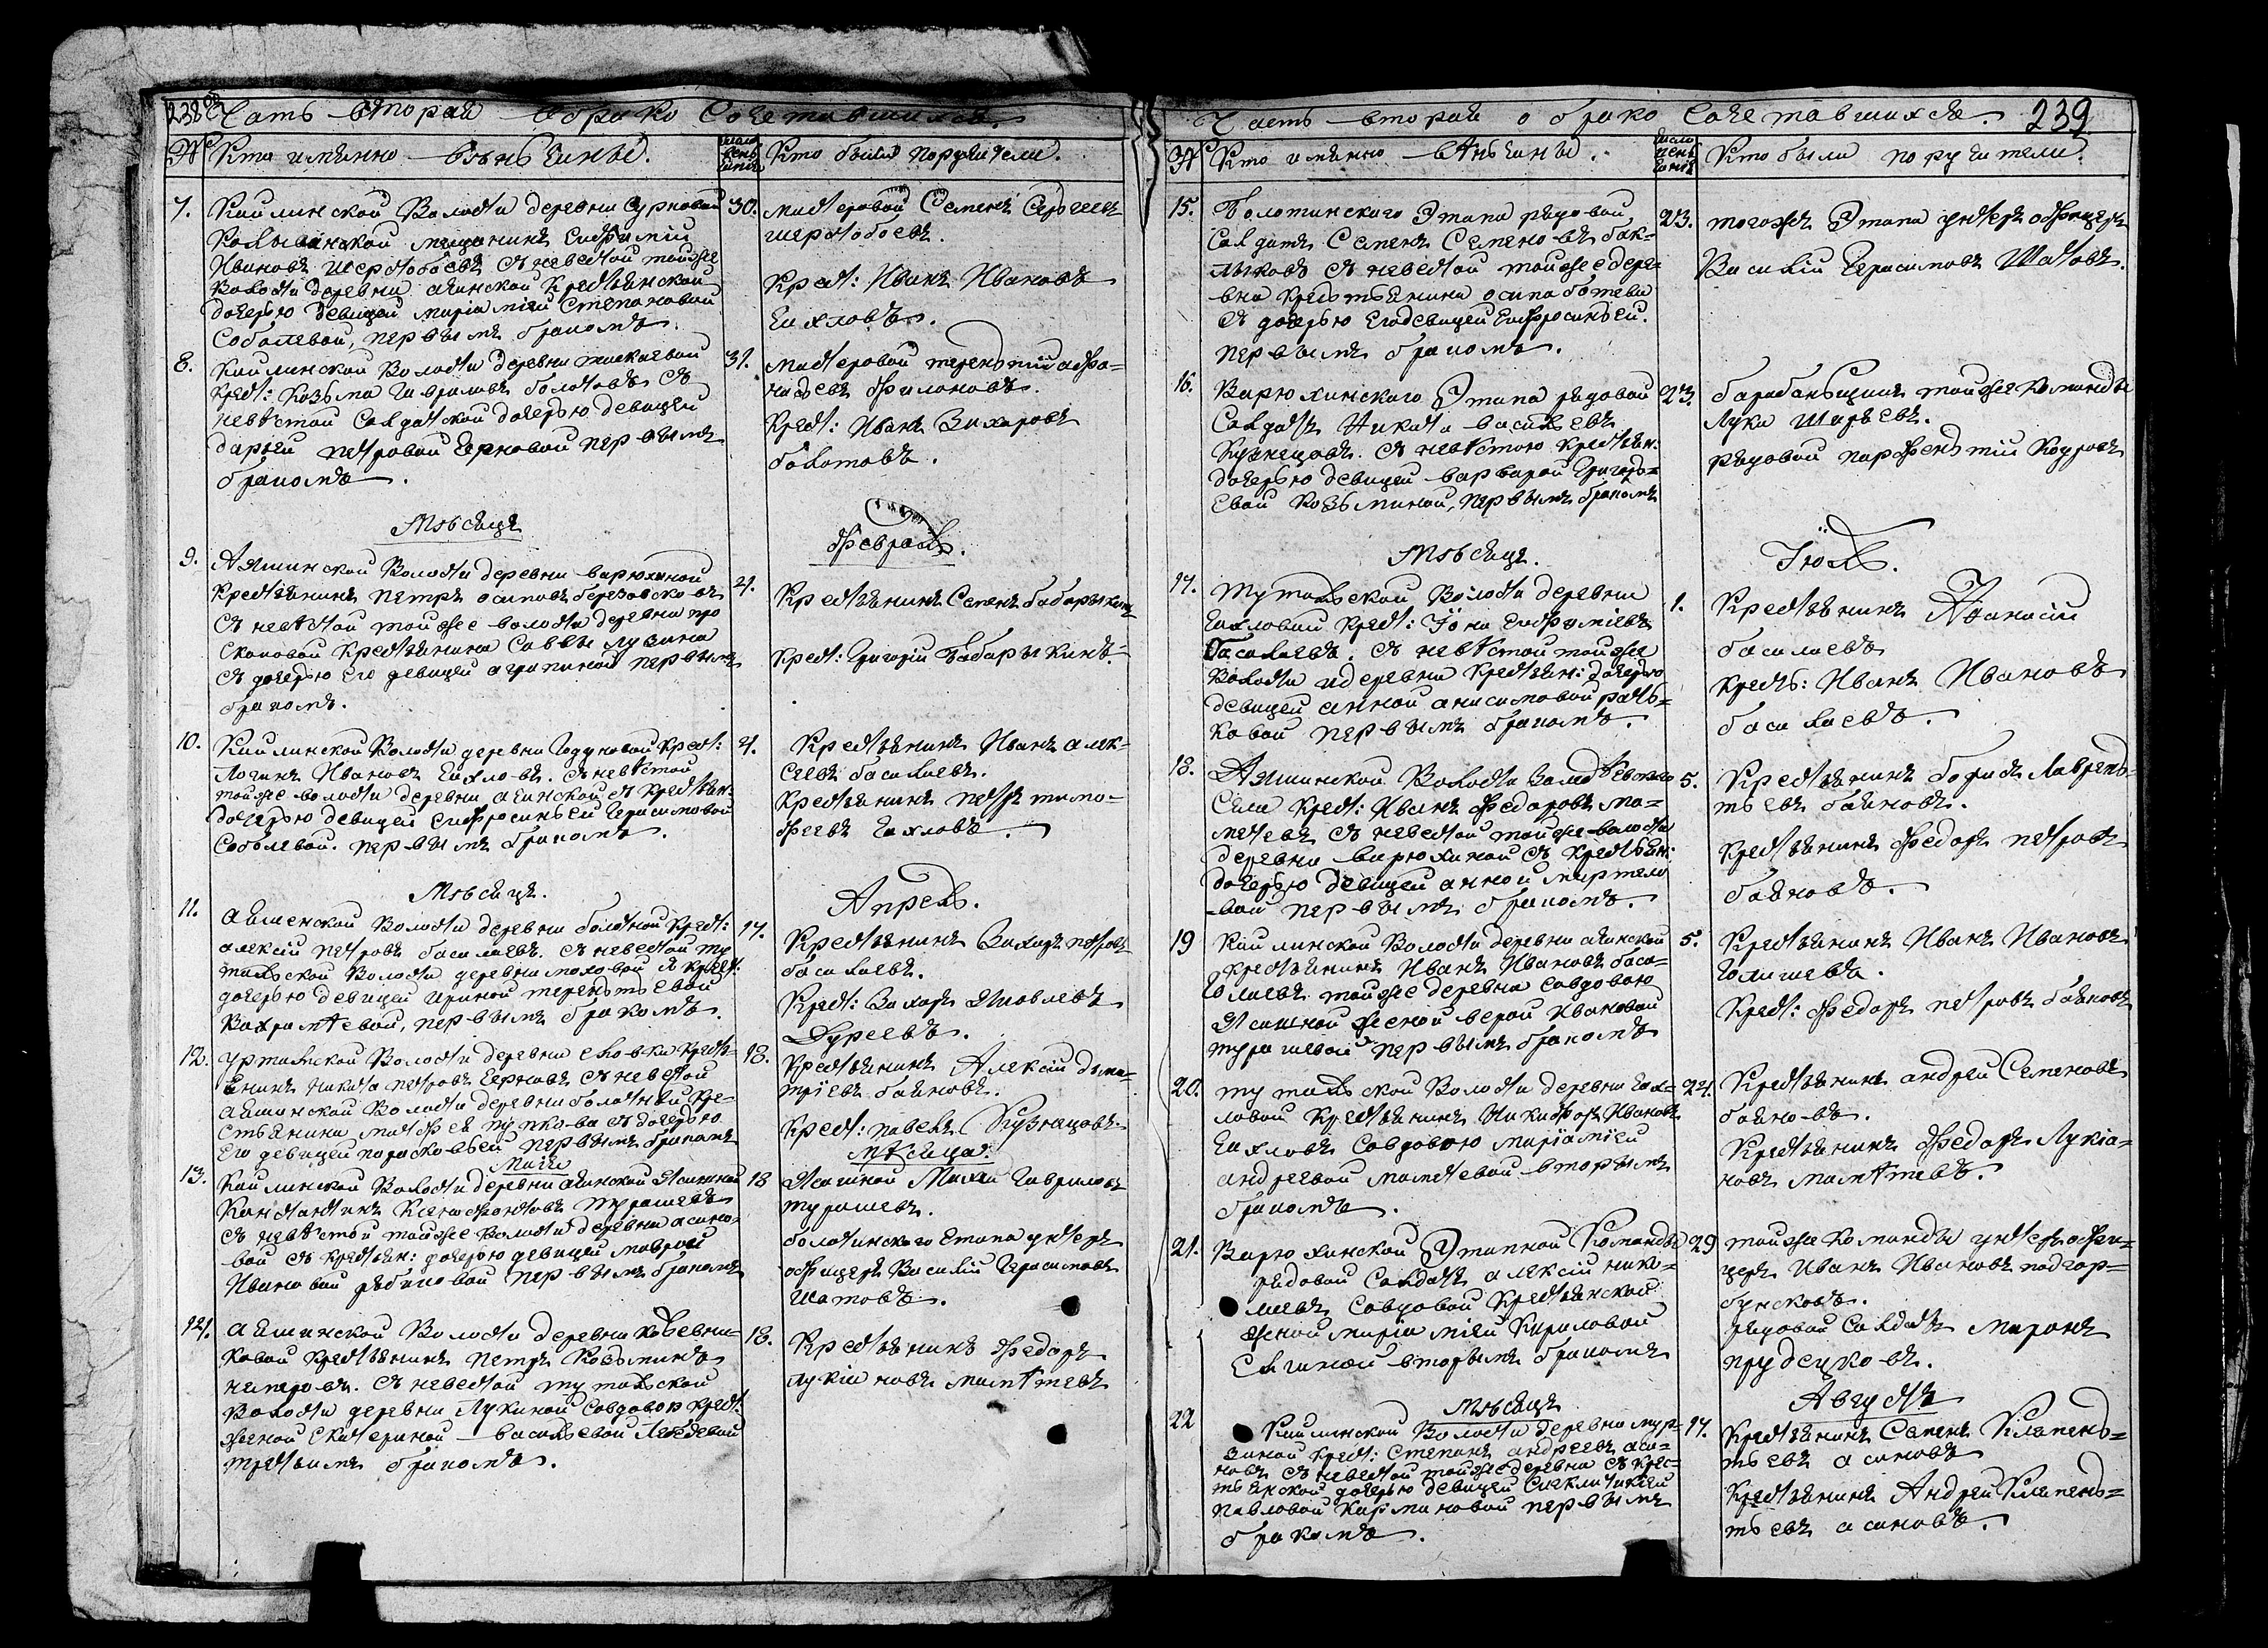 238об
Часть вторая о брако Сочетавшихся.
№ Кто имянно вѣнчаны. число венчания Кто были поручители.
7. Кайлинской Волости деревни
Колыванской мещанинъ Ефимій
Ивановъ Шерстобоевъ съ невестой тойже
Волости деревни ачинской Крестьянской
дочерью девицей Маріаміей Степановой
Соболевой, первымъ бракомъ.
30. мастеровой Семенъ Сергеевъ
шерстобоевъ.
Крест: Иванъ Ивановъ
Чахловъ.
8. Кайлинской Волости деревни
Крест: Козьма Гавриловъ болотовъ съ
невѣстой Солдатской дочерью девицей
дарьей петровой Черновой первымъ
бракомъ.
31. мастеровой терентій афо-
насьевъ филоновъ.
Крест: Иванъ Захаровъ
болотовъ.
Мѣсяцъ
Февраль.
9. Ояшинской Волости деревни варюхиной
Крестьянинъ петръ осиповъ березовсковъ
съ невѣстой тойже волости деревни про
скоковой Крестьянина Саввы Лузина
съ дочерью его девицей агрипиной первымъ
бракомъ.
4. Крестьянинъ Семенъ бабарыкинъ
Крест: Григорій Бабарыкинъ.
10. Кайлинской Волости деревни Гадуновой Крест:
Логинъ Ивановъ Чахловъ. съ невѣстой
тойже волости деревни ачинской съ Крестьян:
дочерью девицей Ефросиньей Герасимовой
Соболевой. первымъ бракомъ.
4. Крестьянинъ Иванъ алек-
сеевъ басалаевъ.
Крестьянинъ петръ тимо-
феевъ Чахловъ.
Мѣсяцъ.
Апрель.
11. аяшенской Волости деревни болотной Крест:
алексій петровъ басалаевъ. съ невестой ту
тальской Волости деревни моховой Крест:
дочерью девицей Ириной терентьевой
Вахрамѣевой, первымъ бракомъ.
17. Крестьянинъ Захаръ петровъ
басалаевъ.
Крест: Захаръ Яковлевъ
Дуреевъ.
12. Уртамской Волости деревни еловки Кресть-
янинъ Никита петровъ Черновъ съ невестой
аяшинской Волости деревни болотной Кре-
стьянина матфея пупкова съ дочерью
его девицей парасковьей первымъ бракомъ
18. Крестьянинъ Алексій дми-
тріевъ баяновъ.
Крест: павелъ Кузнецовъ.
Маія
мѣсяца.
13. Кайлинской Волости деревни ачинской Ясашной
Константинъ Ксенофонтовъ турашевъ
съ невѣстой тойже волости деревни асано-
вой съ Крестьян: дочерью девицей маврой
Ивановой рябиновой первымъ бракомъ
18 Ясашной Михаи Гавриловъ
турашевъ.
болотинского Етапа унтеръ
офицеръ Василій Герасимовъ
Шатовъ.
14. аяшинской Волости деревни кожевни-
ковой Крестьянинъ петръ Козьминъ
съ невестой тутальской
Волости деревни Лукиной Совдовою Крест:
женой Екатериной васильевой Лебедевой
третьимъ бракомъ.
18. Крестьянинъ Федоръ
лукіановъ маметьевъ
Часть вторая о брако Сочетавшихся. 239
№ Кто имянно вѣнчаны. число венчания Кто были поручители.
15. Болотинского Этапа рядовой
Солдатъ Семенъ Семеновъ бак-
лыковъ съ невестой тойже дере-
вни Крестьянина осипа ботева
съ дочерью Его девицей Ефросиньей.
первымъ бракомъ.
23. тогоже Этапа унтеръ офицеръ
Василій Герасимовъ Шатовъ.
16. Варюхинского Этапа рядовой
Солдатъ Никита васильевъ
Кузнецовъ. съ невѣстою крестьян:
дочерью девицей варварой Григорь-
евой Козьминой, первымъ бракомъ
23. барабанщикъ тойже команды
Лука Шарьевъ.
Рядовой парфентій Кодровъ
Мѣсяцъ.
Іюль.
17. Тутальской Волости деревни
Чахловой Крест: Іона Ефиміевъ
басалаевъ. съ невѣстой тойже
Волости и деревни Крестьян: дочерью
девицей анной анисимовой рать-
ковой первымъ бракомъ.
1. Крестьянинъ Афанасій
басалаевъ
Крест: Иванъ Ивановъ
басалаевъ.
18. Ояшинской Волости
Села Крест: Иванъ Федоровъ ма-
метевъ съ невестой тойже волости
деревни варюхиной съ Крестьян:
дочерью девицей анной мартело
вой первымъ бракомъ.
5. Крестьянинъ борисъ Лаврень-
тьевъ баяновъ.
Крестьянинъ Федоръ петровъ
баяновъ.
19 Кайлинской Волости деревни ачинской
Крестьянинъ Иванъ Ивановъ
тойже деревни Совдовою
Ясашной женой верой Ивановой
турашевой первымъ бракомъ
5. Крестьянинъ Иванъ Ивановъ
Крест: Федоръ петровъ баяновъ
20. тутальской Волости деревни Чах-
ловой Крестьянинъ Никифоръ Ивановъ
Чахловъ Совдовою Маріаміей
андреевой маметевой вторымъ
бракомъ.
24. Крестьянинъ андрей Семеновъ
баяновъ.
Крестьянинъ Федоръ Лукіа-
новъ мамѣтевъ.
21. Варюхинской Этапной Команды
рядовой Солдатъ алексій нико-
лаевъ Совдовой Крестьянской
женой маріаміей Кириловой
Елгиной вторымъ бракомъ
29 тойже команды унтеръ офи-
церъ Иванъ Ивановъ подгор-
бунсковъ.
рядовой Солдатъ Миронъ
прудецковъ.
Мѣсяцъ
Августъ
22 Кайлинской Волости деревни мур-
зиной Крест: Степанъ андреевъ аса-
новъ съ невестой тойже деревни съ Крес-
тьянской дочерью девицей Синклитикіей
павловой Кармановой первымъ
бракомъ.
17. Крестьянинъ Семенъ Клемень-
тьевъ асановъ
Крестьянинъ Андрей Клемень-
тьевъ асановъ.